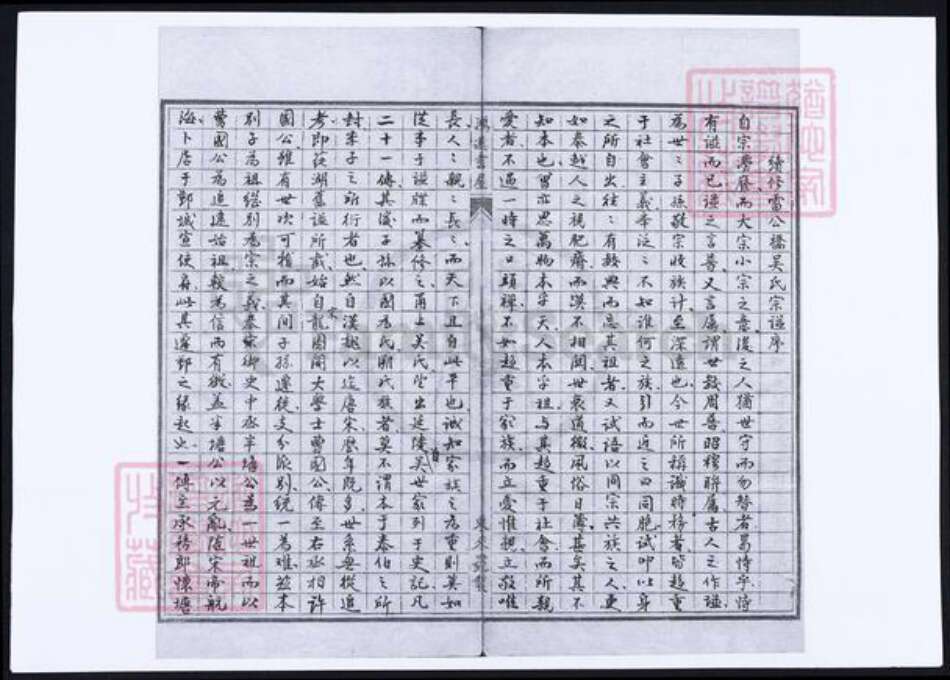 續修雷公橋吳氏宗譜序
自宗灋廢而大宗小宗之意後之人猶世守而勿替者曷恃乎恃
有譜而已譜之言普又言屬謂世數周普昭穆聯屬古人之作譜
為世世子孫敬宗收族計至深遠也今世所稱識時務者皆趨重
于社會主義夫泛泛不知誰何之族引而近之曰同胞試叩以身
之所自出往往有數典而忘其祖者又試語以同宗共族之人更
如秦越人之視肥瘠而漠不相關世衰道微風俗日薄甚矣其不
知本也曷亦思萬物本乎天人本乎祖與其趨重于社會而所親
愛者不過一時之口頭禪不如趨重于家族而立愛惟親立敬唯
長人人親親長長而天下且自此平也誠知家族之為重則莫如
從事于譜牒而纂修之甬上吳氏望出延陵吳世家列于史記凡
二十一傳其後子孫以國為氏明氏族者莫不謂本于泰伯之所
封季子之所衍者也然自漢魏以迄唐宋歷年既多世系無從追
考即茭湖舊譜所載始自宋龍圖閣大學士曹國公傳至右丞相許
國公雖有世次可稽而其間子孫遷徙支分派別統一為難茲本
別子為祖繼別為宗之義奉宋御史中丞半塘公為一世祖而以
曹國公為追遠始祖較為信而有徵蓋半塘公以元亂隨宋帝航
海卜居于鄞城宣使府此其遷鄞之緣起也一傳至承務郎懷塘